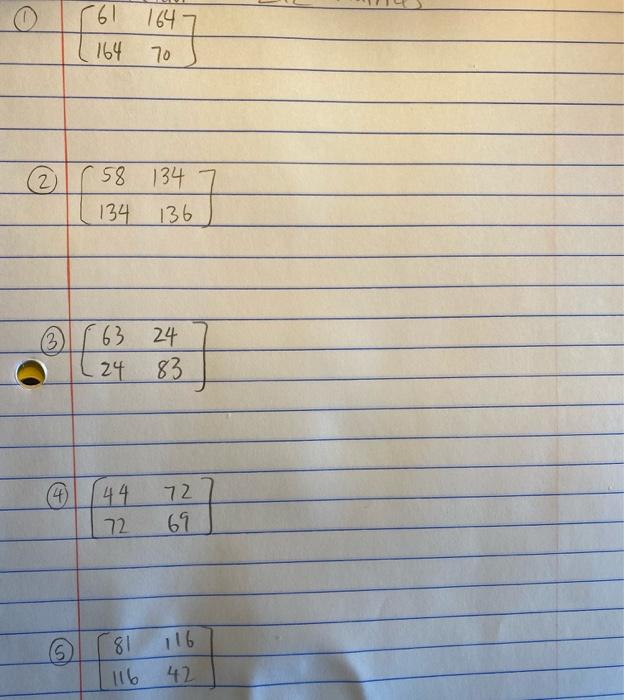 ① 61 164
164 70
② 58 134
134 136
③ 63 24
24 83
④ 44 72
72 69
⑤ 81 116
116 42